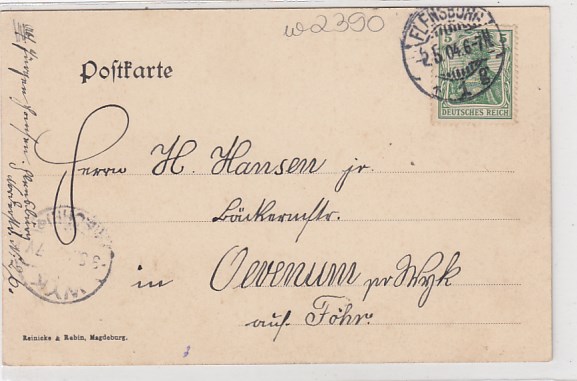 w2390
FLENSBURG
2.5.04.6-7N
1 g
DEUTSCHES REICH
Postkarte
Herrn H. Hansen jr.
Bäckermstr.
in Oevenum pr Wyk
auf Föhr.
WYK
Reinicke & Rubin, Magdeburg.